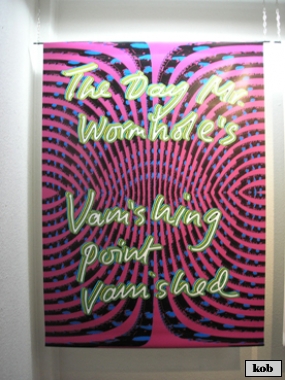 The Day Mr.
Wormhole's
Vanishing
point
Vanished
kob